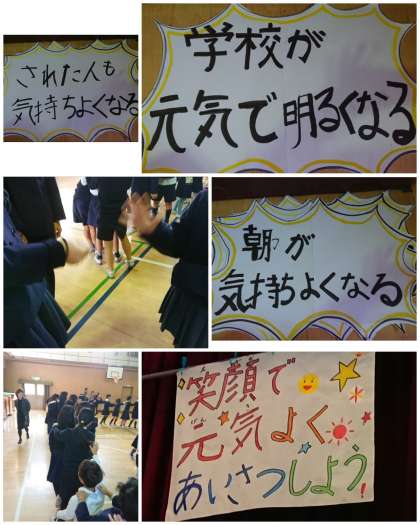 された人も
気持ちよくなる
学校が
元気で明るくなる
朝が
気持ちよくなる
笑顔で
元気よく
あいさつしよう!